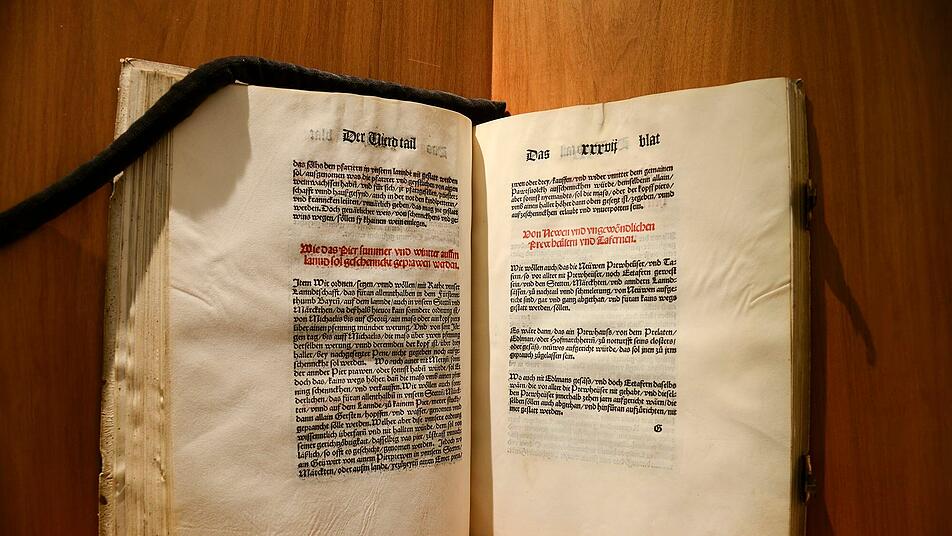 Der Vierd tail
das sölhs den pfarrern in vnsern lannde nit gestatt werden
sol / aufgenomen was die pfarrer vnd geystlichen von aigen
weinwachssen habñ / vnd für sich / jr pfarrgesellen / priesters
schafft vnnd haufgesynd / auch in der not den kindpetterin /
vnd krancken leüten / vnuärlich geben / das mag jne gestatt
werden. Doch geuärlicher weis / von schennckens vnd ge=
wins wegen / söllen sy khainen wein einlegen.
Wie das Pier summer vnd winter auffm
lannd sol geschennckt vnd geprawen werden.
Item Wir ordnen / setzen / vnnd wöllen / mit Rathe vnnser
Lanndtschafft / das füran allennthalben in dem Fürsten=
thumb Bayrñ / auf dem lannde / auch in vnsern Stettñ vnd
Märckthen / da deßhalb hieuor kain sonndere ordnung ist /
von Michaelis bis auf Georij / ain mass oder ain kopf piers
über ainen pfenning müncher werung / Vnd von sant Jör=
gen tag / biß auff Michaelis / die mass über zwen pfenning
derselben werung / vnnd derennden der kopf ist / über drey
haller / bey nachgesetzter Pene / nicht gegeben noch aufge=
schennckht sol werden. Wo auch ainer nit Mertzñ / sonnder
annder Pier prawen / oder sonnst habñ würde / sol Er
doch das / kains wegs höher / dañ die mass vmb ainen pfen=
ning schenncken / vnd verkauffen. Wir wöllen auch sonn=
derlichen / das füran allenthalben in vnsern Stetñ / Märckh=
ten / vnnd auf dem Lannde / zu kainem Pier / merer stuckh /
dann allain Gersten / hopffen / vnd wasser / genomen vnd
gepraucht sölle werden. Welher aber dise vnnsere ordnung
wissenntlich überfarñ vnd nit hallten würde / dem sol von
seiner gerichtzöbrigkait / dasselbig vas pier / zůstraff vnnach=
läßlich / so offt es geschicht / genomen werden. Jedoch wo
ain Geüwirt von ainem Pierprewen in vnnsern Stettñ /
Märckten / oder aufm lannde / yezuzeytñ ainen Emer piers /
Das xxxvij blat
zwen oder drey / kauffen / vnd wider vnnter dem gemainen
Pawrsfolckh ausschenncken würde / demselben allain /
aber sonnst nyemandts / sol die mass / oder der kopf piers /
vmb ainen haller höher dann oben gesetzt ist / zegeben / vnnd
aufzeschenncken erlaubt vnd vnuerpoten sein.
Von Newen vnd vngewöndlichen
Prewheüsern vnd Tafernen.
Wir wöllen auch / das die Neüwen Prewheüser / vnd Ta=
fern / so vor alter nit Prewheüser / noch Eetafern gewest
sind / vnd zu nachtail vnd schmelerung / von Neüwen aufge=
richt sind / gar vnd gantz abgethan / vnd füran kains wegs
gestatt werden / söllen.
Es wäre dann / das ain Prewhauß / von dem Prelaten /
Edlman / oder Hofmarchherrñ / zu notturfft seins closters /
oder gesäß / neüwes aufgericht würde / das sol jnen zu jrem
geprauch zůgelassen sein.
Wo auch nit Edlmans gesäß / vnd doch Eetafern daselbs
wärn / die vor alter die Prewheüser nit gehabt / vnd dieselben
Prewheüser innerhalb zehen jarn aufgericht wärñ / die=
selben söllen auch abgethan / vnd hinfüran aufzůrichten / nit
mer gestatt werden.
G